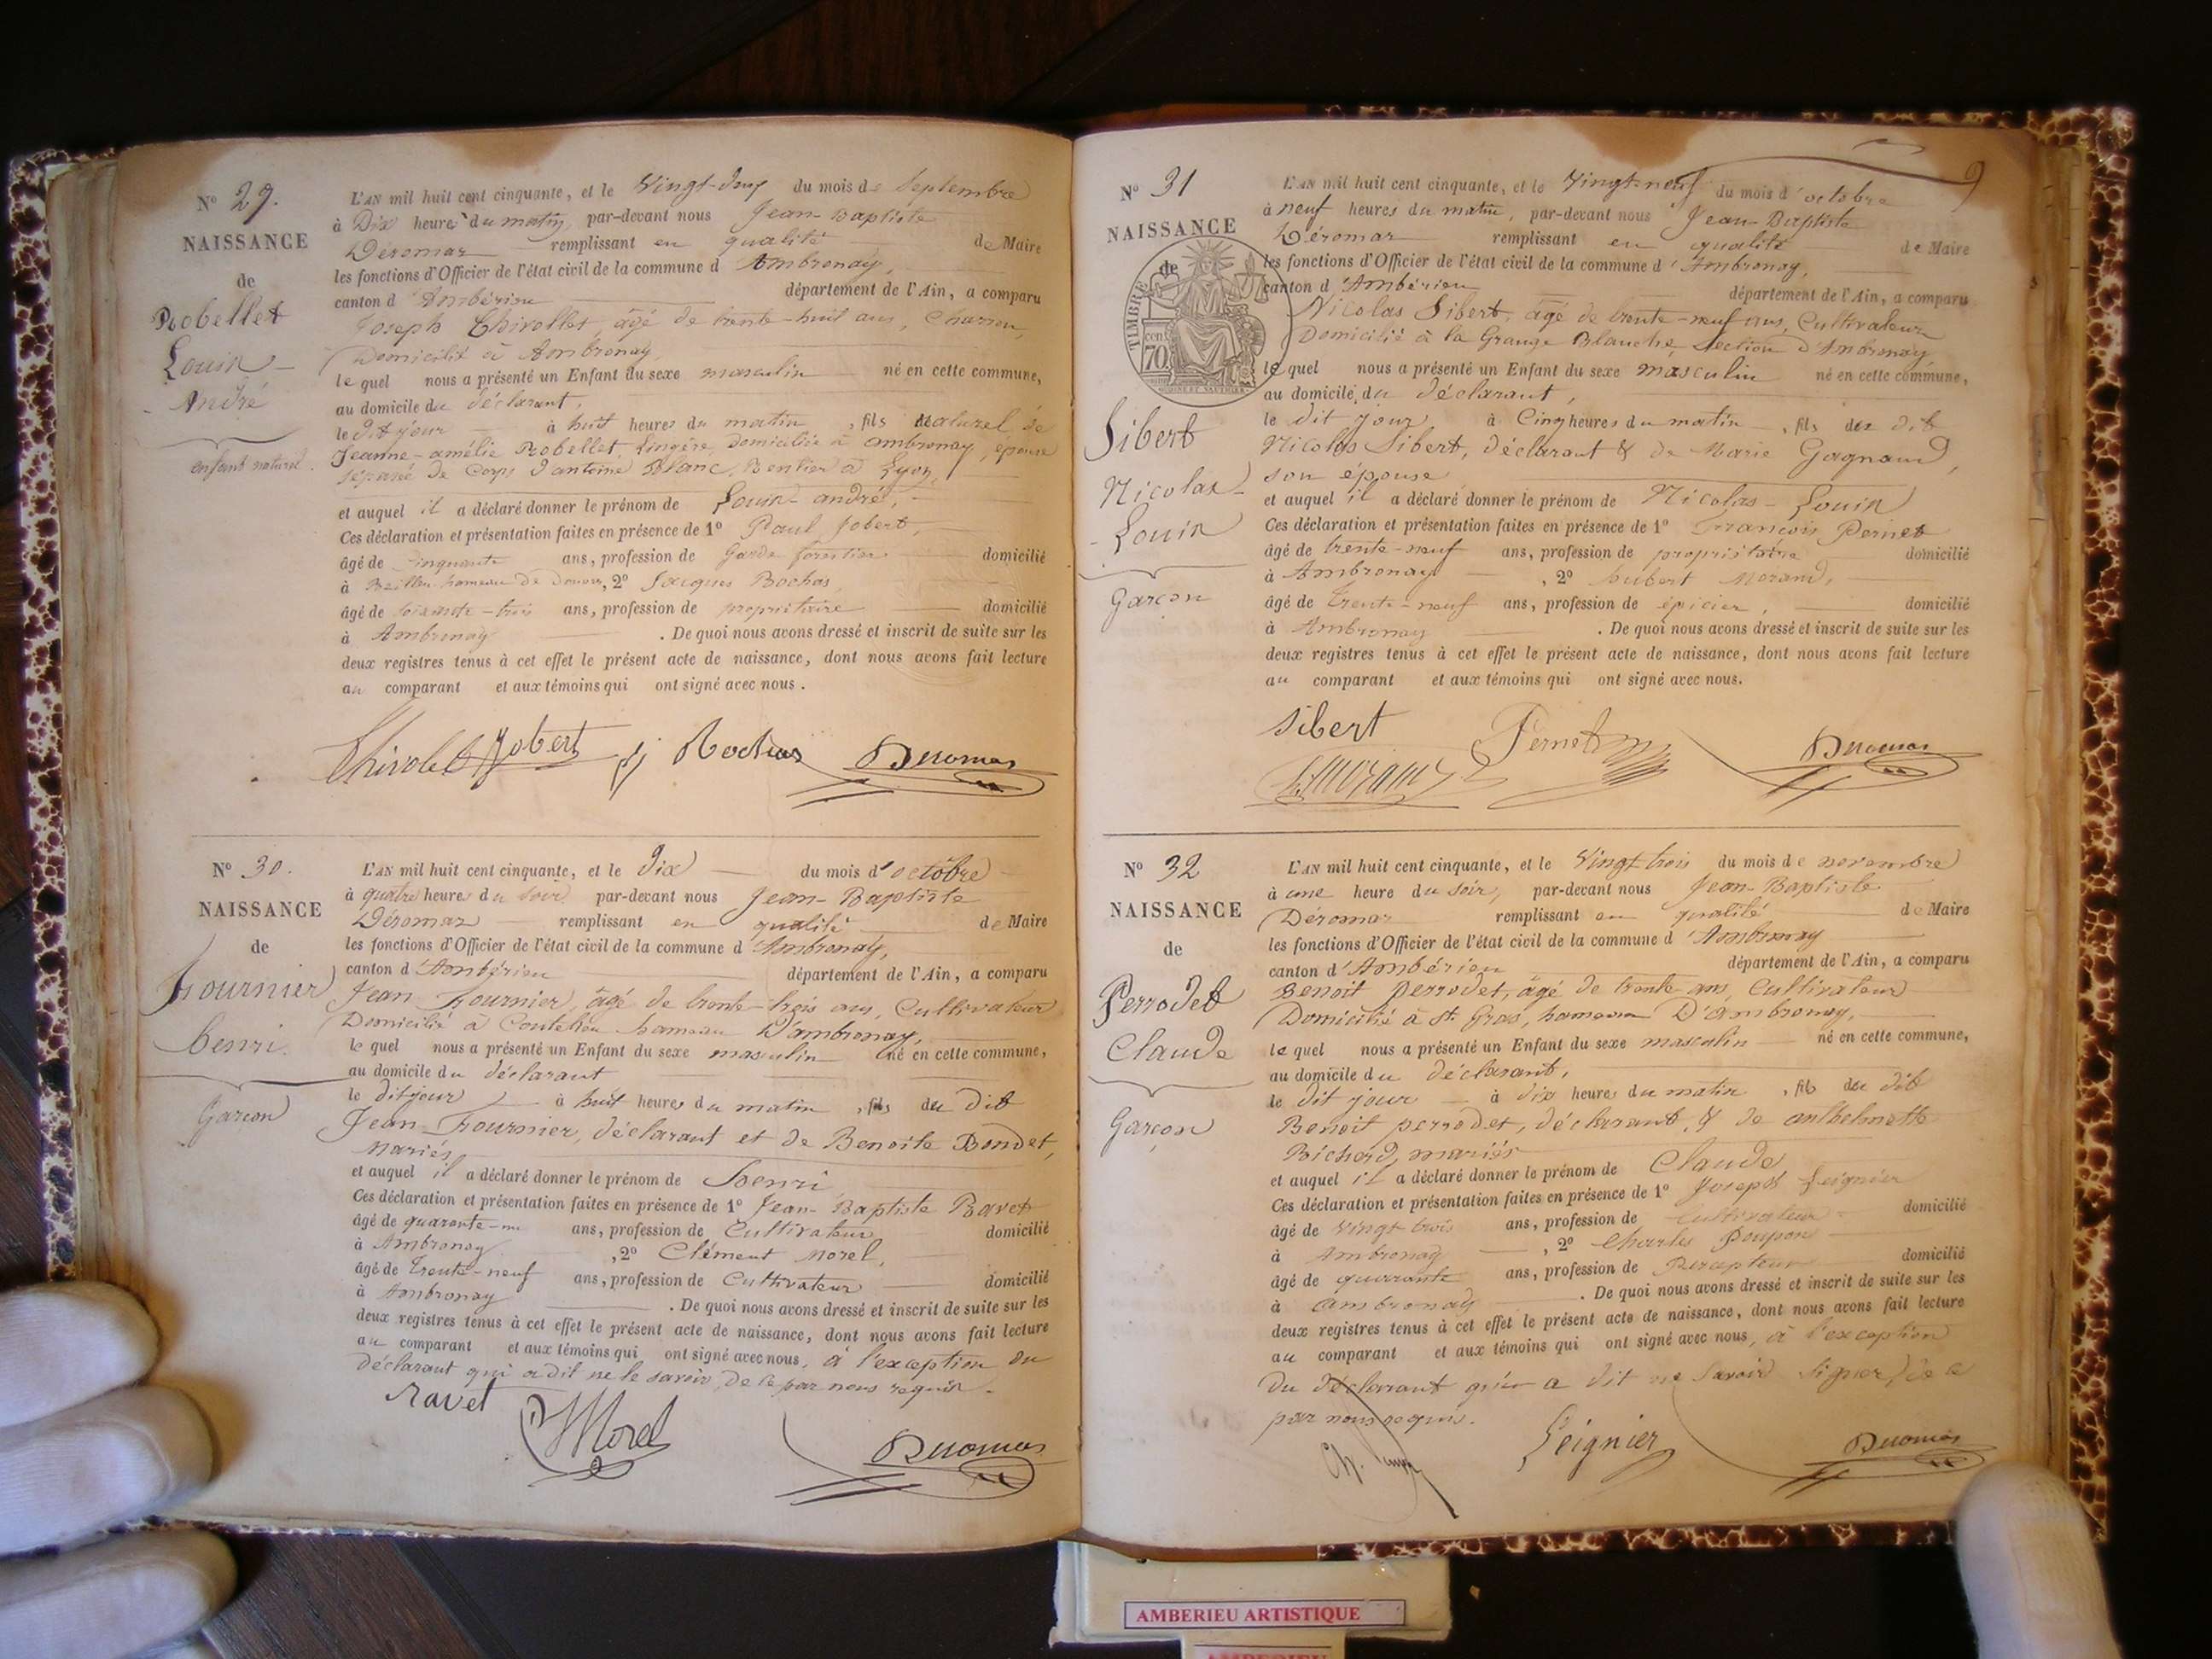 N° 29.
NAISSANCE
de
Robellet
Louis-
André
enfant naturel.
L'AN mil huit cent cinquante, et le Vingt-deux du mois de Septembre
à Dix heures du matin, par-devant nous Jean-Baptiste
Déromas remplissant en qualité de Maire
les fonctions d'Officier de l'état civil de la commune d'Ambronay,
canton d'Ambérieu département de l'Ain, a comparu
Joseph Thivollet, âgé de trente-huit ans, Charron,
Domicilié à Ambronay,
lequel nous a présenté un Enfant du sexe masculin né en cette commune,
au domicile du déclarant,
le dit jour à huit heures du matin, fils naturel de
Jeanne-amélie Robellet, Lingère, domiciliée à ambronay, épouse
séparée de Corps d'antoine Blanc, Rentier à Lyon,
et auquel il a déclaré donner le prénom de Louis-andré,
Ces déclaration et présentation faites en présence de 1° Paul Jobert,
âgé de cinquante ans, profession de Garde forestier domicilié
à hameau de Douvres, 2° Jacques Rochas,
âgé de soixante-trois ans, profession de propriétaire domicilié
à Ambronay . De quoi nous avons dressé et inscrit de suite sur les
deux registres tenus à cet effet le présent acte de naissance, dont nous avons fait lecture
au comparant et aux témoins qui ont signé avec nous.
Thivolet Jobert j Rochas Deromas
N° 30.
NAISSANCE
de
Fournier
henri.
Garçon
L'AN mil huit cent cinquante, et le Dix du mois d'octobre
à quatre heures du soir par-devant nous Jean-Baptiste
Déromas remplissant en qualité de Maire
les fonctions d'Officier de l'état civil de la commune d'Ambronay,
canton d'Ambérieu département de l'Ain, a comparu
Jean Fournier, âgé de trente-trois ans, Cultivateur
Domicilié à Coutelieu hameau D'ambronay,
lequel nous a présenté un Enfant du sexe masculin né en cette commune,
au domicile du déclarant
le dit jour à huit heures du matin, fils du Dit
Jean Fournier, déclarant et de Benoite Bondet,
mariés,
et auquel il a déclaré donner le prénom de henri
Ces déclaration et présentation faites en présence de 1° Jean-Baptiste Ravet
âgé de quarante-un ans, profession de Cultivateur domicilié
à Ambronay, 2° Clément Morel,
âgé de Trente-neuf ans, profession de Cultivateur domicilié
à Ambronay . De quoi nous avons dressé et inscrit de suite sur les
deux registres tenus à cet effet le présent acte de naissance, dont nous avons fait lecture
au comparant et aux témoins qui ont signé avec nous, à l'exception du
déclarant qui a dit ne le savoir, de ce par nous requis.
ravet Morel Deromas
9
N° 31
NAISSANCE
de
TIMBRE
70
Sibert
Nicolas-
-Louis
Garçon
L'AN mil huit cent cinquante, et le Vingt-neuf du mois d'octobre
à neuf heures du matin, par-devant nous Jean-Baptiste
Déromas remplissant en qualité de Maire
les fonctions d'Officier de l'état civil de la commune d'Ambronay,
canton d'Ambérieu département de l'Ain, a comparu
Nicolas Sibert, âgé de trente-neuf ans, Cultivateur
Domicilié à la Grange Blanche, section d'Ambronay
lequel nous a présenté un Enfant du sexe masculin né en cette commune,
au domicile du déclarant,
le dit jour à Cinq heures du matin, fils du dit
Nicolas Sibert, déclarant & de Marie Gagnaud,
son épouse
et auquel il a déclaré donner le prénom de Nicolas-Louis
Ces déclaration et présentation faites en présence de 1° François Pernet
âgé de trente-neuf ans, profession de propriétaire domicilié
à Ambronay, 2° hubert Morand,
âgé de Trente-neuf ans, profession de épicier, domicilié
à Ambronay . De quoi nous avons dressé et inscrit de suite sur les
deux registres tenus à cet effet le présent acte de naissance, dont nous avons fait lecture
au comparant et aux témoins qui ont signé avec nous.
Sibert Pernet Deromas
h. morand
N° 32
NAISSANCE
de
Perrodet
Claude
Garçon
L'AN mil huit cent cinquante, et le Vingt trois du mois de novembre
à une heure du soir, par-devant nous Jean-Baptiste
Déromas remplissant en qualité de Maire
les fonctions d'Officier de l'état civil de la commune d'Ambronay
canton d'Ambérieu département de l'Ain, a comparu
Benoit perrodet, âgé de trente ans, Cultivateur
Domicilié à St. Gras, hameau D'ambronay,
lequel nous a présenté un Enfant du sexe masculin né en cette commune,
au domicile du déclarant,
le dit jour à dix heures du matin, fils du dit
Benoit perrodet, déclarant, & de anthelmette
Richerd, mariés
et auquel il a déclaré donner le prénom de Claude
Ces déclaration et présentation faites en présence de 1° Joseph Leignier
âgé de vingt trois ans, profession de Cultivateur domicilié
à Ambronay, 2° Charles Poupon
âgé de quarante ans, profession de Percepteur domicilié
à ambronay . De quoi nous avons dressé et inscrit de suite sur les
deux registres tenus à cet effet le présent acte de naissance, dont nous avons fait lecture
au comparant et aux témoins qui ont signé avec nous, à l'exception
Du déclarant qui a dit ne Savoir signer, de ce
par nous requis.
Ch. Leignier Deromas
AMBERIEU ARTISTIQUE
AMBERIEU